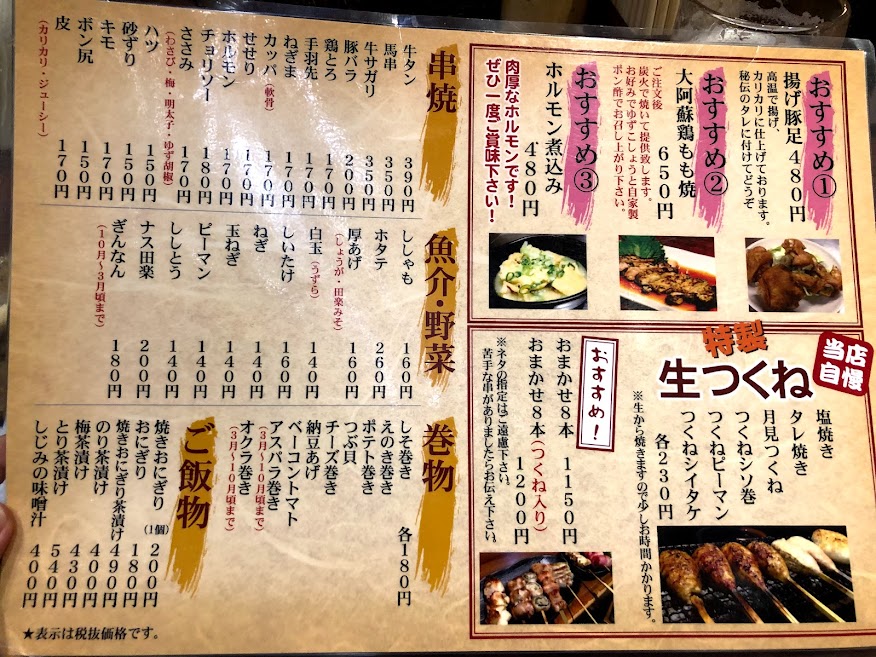 おすすめ①
揚げ豚足 480円
高温で揚げ、
カリカリに仕上げております。
秘伝のタレに付けてどうぞ
おすすめ②
大阿蘇鶏もも焼 650円
ご注文後
炭火で焼いて提供致します。
お好みでゆずこしょうと自家製
ポン酢でお召し上がり下さい。
おすすめ③
ホルモン煮込み 480円
肉厚なホルモンです!
ぜひ一度ご賞味下さい!
当店自慢
特製
生つくね
塩焼き
タレ焼き
月見つくね
つくねシソ巻
つくねピーマン
つくねシイタケ
各230円
※生から焼きますので少しお時間かかります。
おすすめ!
おまかせ8本 1150円
おまかせ8本(つくね入り) 1200円
※ネタの指定はご遠慮下さい。
苦手な串がありましたらお伝え下さい。
串焼
牛タン 390円
馬串 350円
牛サガリ 350円
豚バラ 200円
鶏とろ 170円
手羽先 170円
ねぎま 170円
カッパ(軟骨) 170円
せせり 170円
ホルモン 170円
チョリソー 180円
ささみ 170円
(わさび・梅・明太子・ゆず胡椒)
ハツ 150円
砂ずり 150円
キモ 170円
ボン尻 150円
皮 170円
(カリカリ・ジューシー)
魚介・野菜
ししゃも 160円
ホタテ 260円
厚あげ 160円
(しょうが・田楽みそ)
白玉(うずら) 140円
しいたけ 160円
ねぎ 140円
玉ねぎ 140円
ピーマン 140円
ししとう 140円
ナス田楽 200円
ぎんなん 180円
(10月〜3月頃まで)
巻物
しそ巻き
えのき巻き
ポテト巻き
つぶ貝
チーズ巻き
納豆あげ
ベーコントマト
アスパラ巻き
(3月〜10月頃まで)
オクラ巻き
(3月〜10月頃まで)
各180円
ご飯物
焼きおにぎり(1個) 200円
おにぎり 180円
焼きおにぎり茶漬け 490円
のり茶漬け 400円
梅茶漬け 430円
とり茶漬け 540円
しじみの味噌汁 400円
★表示は税抜価格です。